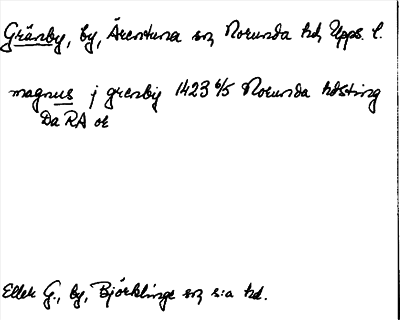 Gränby, by, Ärentuna sn, Norunda hd, Upps. l.
magnus j grenby 1423 6/5 Norunda hdsting
Da RA or
Eller G., by, Björklinge sn, s:a hd.